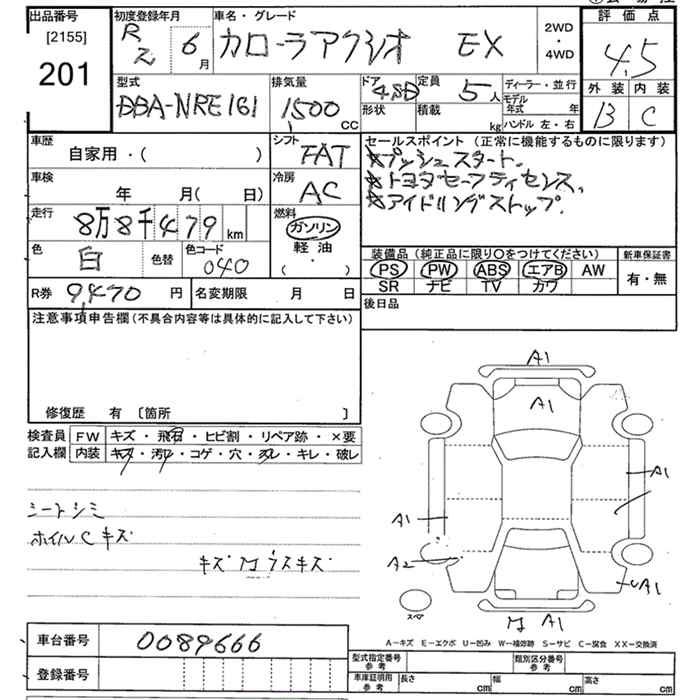 出品番号
[2155]
201
初度登録年月
R2 6月
車名・グレード
カローラアクシオ EX
2WD
・
4WD
評価点
4.5
外装 内装
B C
型式
DBA-NRE161
排気量
1500 CC
ドア 4SD
形状
定員 5人
積載 kg
ディーラー・並行
モデル年式 年
ハンドル 左・右
車歴
自家用・( )
シフト
FAT
セールスポイント (正常に機能するものに限ります)
★プッシュスタート.
★トヨタセーフティセンス,
★アイドリングストップ.
車検
年 月( 日)
冷房
AC
走行
8万8千479 km
燃料
ガソリン
軽油
( ・ )
色
白
色替
色コード
040
装備品 (純正品に限り○をつけてください)
PS PW ABS エアB AW
SR ナビ TV カワ
新車保証書
有・無
R券 9,470 円
名変期限 月 日
後日品
注意事項申告欄(不具合内容等は具体的に記入して下さい)
修復歴 有 [箇所 ]
検査員
記入欄
FW キズ・飛石・ヒビ割・リペア跡・×要
内装 キズ・汚れ・コゲ・穴・スレ・キレ・破レ
シートシミ
ホイルCキズ
キズ M ウスキズ
A1
A1
A1
A1
A2
A1
M A1
スペア
A-キズ E-エクボ U-凹み W-補修跡 S-サビ C-腐食 XX-交換済
車台番号 0089666
登録番号
型式指定番号
参考
類別区分番号
参考
車庫証明用
参考
長さ cm
幅 cm
高さ cm